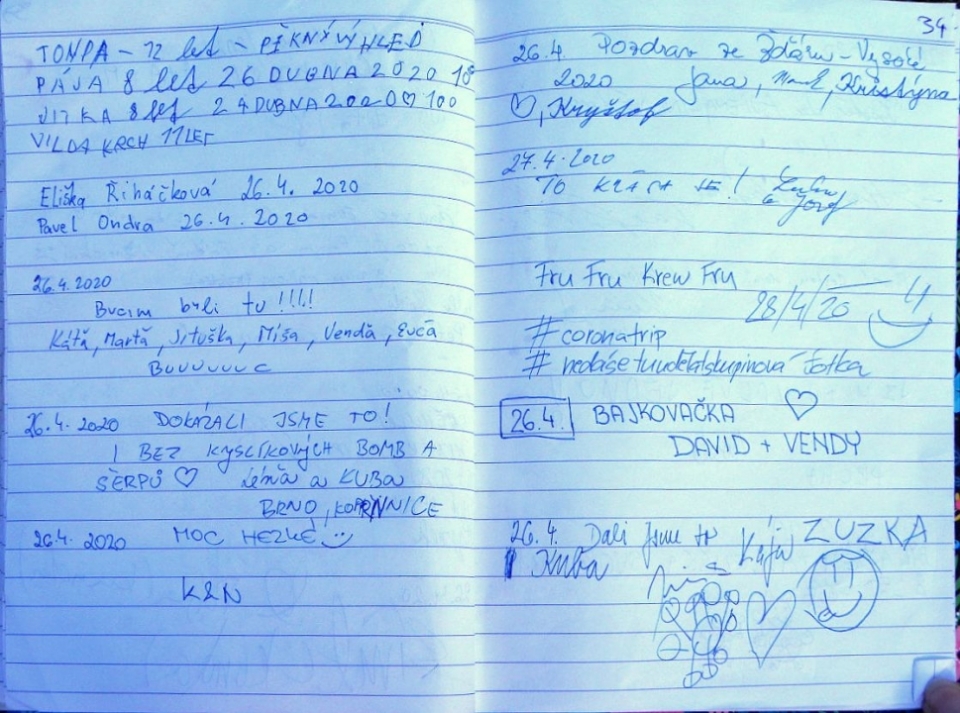 TONDA - 12 let - PĚKNÝ VÝHLED
PÁJA 8 let 26 DUBNA 2020
JITKA 8 let 24 DUBNA 2020 ♡ 100
VILDA KRCH 11 LET
Eliška Řiháčková 26.4. 2020
Pavel Ondra 26.4.2020
26.4.2020
Bucim byli tu !!!!
Kátă, Martă, Jituška, Míša, Vendă, Eucă
Buuuuuuc
26.4.2020 DOKÁZALI JSME TO!
I BEZ KYSLÍKOVÝCH BOMB A
ŠERPŮ ♡ a KUBA
BRNO,
26.4. 2020 MOC HEZKÉ
K&N
34
26.4 Pozdrav ze Žďáru - Vysoké
2020 Jana, Kristýna
♡, Kryštof
27.4.2020
TO !
Josef
Fru Fru Krew Fru
28/4/20
#coronatrip
#nedášetuudělatskupinová fotka
26.4. BAJKOVAČKA ♡
DAVID + VENDY
26.4. Dali jsme to Kája ZUZKA
Kuba